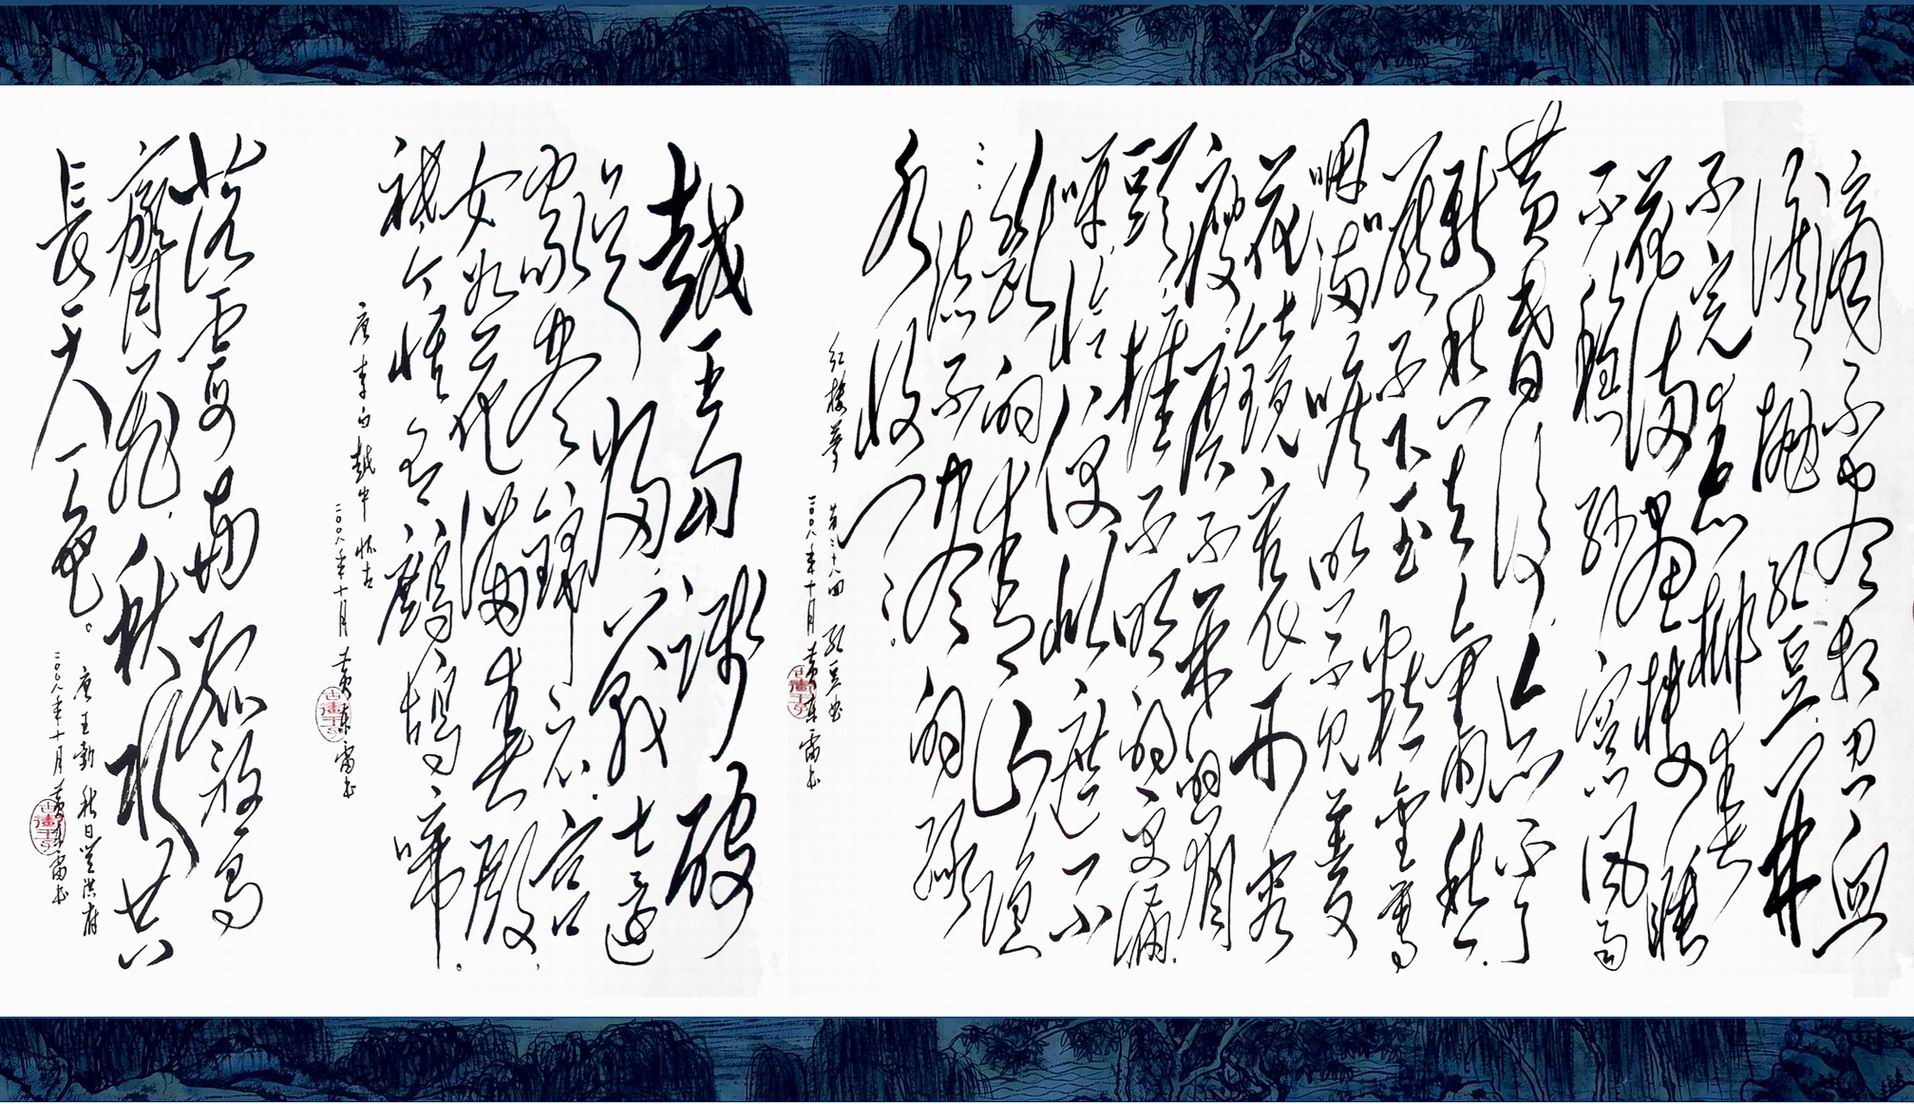 滴不尽相思血
泪抛红豆,开
不完春柳春
花满画楼,睡
不稳纱窗风雨
黄昏后,忘不了
新愁与旧愁.
咽不下玉粒金蓴
噎满喉照不见菱
花镜里形容
瘦.展不开的眉
头.捱不明的更漏.
呀,恰便似遮不
的青山隐
〻流不尽的绿
水悠〻。
红楼梦 第二十八回 红豆曲
二〇〇八年十月 黄东雷书
越王勾践破
吴归.义士还
家尽锦衣.宫
女如花满春殿.
祇今惟有鹧鸪啼.
唐 李白 越中怀古
二〇〇八年十月 黄东雷书
落霞与孤鹜
齐飞.秋水共
長天一色。
唐 王勃 秋日登洪府
二〇〇八年十月 黄东雷书